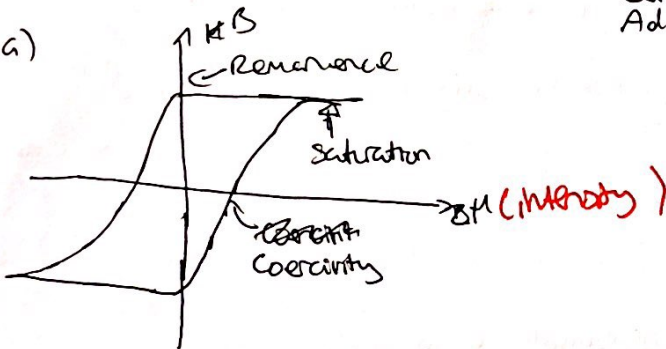 Ad
a)
B
Remanence
Saturation
H (intensity)
Coercivity